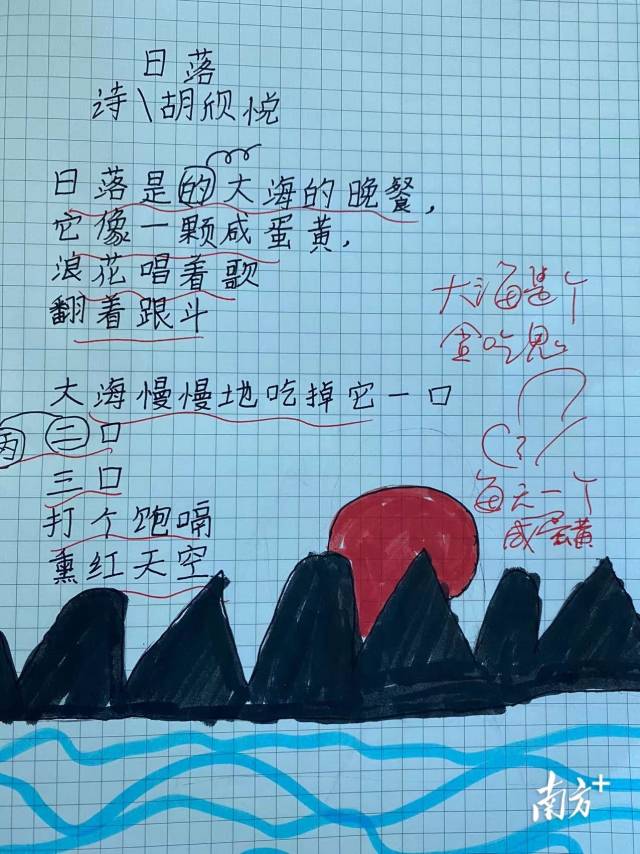 日落
诗\胡欣悦
日落是的大海的晚餐,
它像一颗咸蛋黄,
浪花唱着歌
翻着跟斗
大海慢慢地吃掉它一口
两二口
三口
打个饱嗝
熏红天空
大海是个
贪吃鬼
每天一个
咸蛋黄
南方+